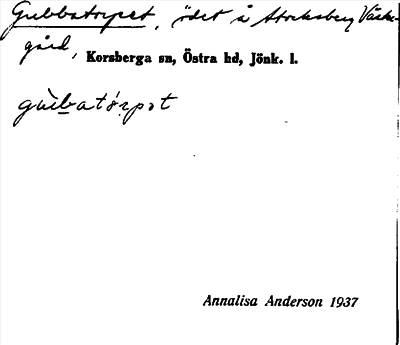 Gubbatorpet, ödet å Stocksberg Västergård,
Korsberga sn, Östra hd, Jönk. l.
gùbatórpət
Annalisa Anderson 1937